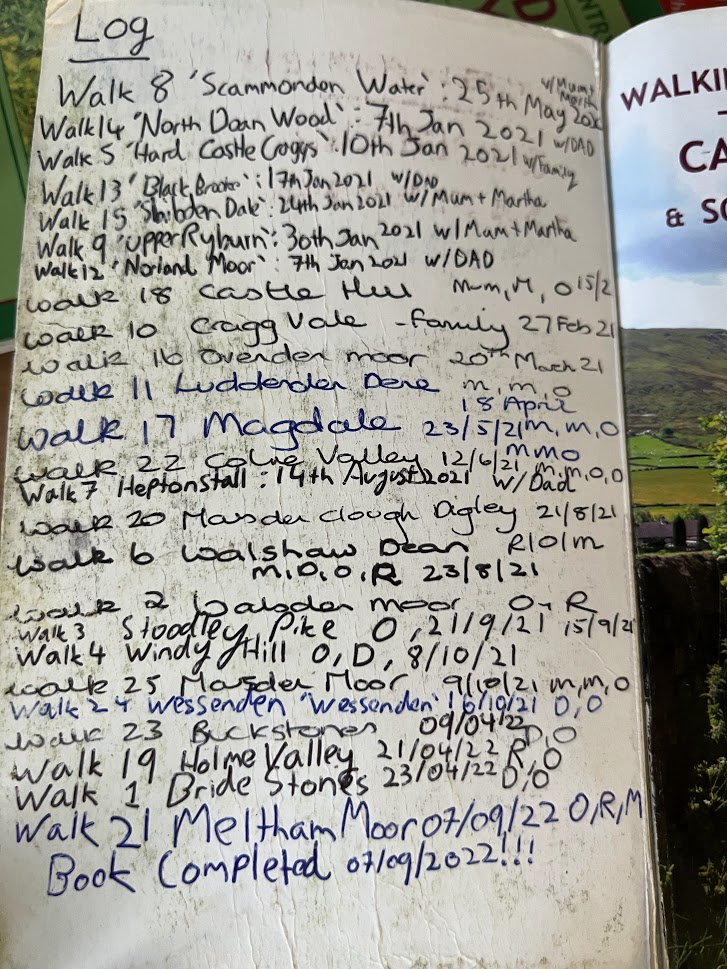 Log
Walk 8 'Scammonden Water' : 25th May 2020 w/Mum + Martha
Walk14 'North Dean Wood' : 7th Jan 2021 w/DAD
Walk 5 'Hard Castle Craggs' : 10th Jan 2021 w/Family
Walk 13 'Black Brook' : 17th Jan 2021 w/DAD
Walk 15 'Shibden Dale' : 24th Jan 2021 w/ Mum + Martha
Walk 9 'Upper Ryburn' : 30th Jan 2021 w/ Mum + Martha
Walk12 'Norland Moor' : 7th Jan 2021 w/DAD
Walk 18 Castle Hill Mum, M, O 15/2
Walk 10 Cragg Vale - family 27 Feb 21
Walk 16 Ovenden moor 20th March 21
Walk 11 Luddenden Dene m, m, o
18 April
Walk 17 Magdale 23/5/21 m, m, o
Walk 22 Colne Valley 12/6/21 MMO
m, m, o, o
Walk 7 Heptonstall : 14th August 2021 w/ Dad
Walk 20 Marsden Clough Digley 21/8/21
Walk 6 Walshaw Dean R/O/m
m, D, O, R 23/8/21
Walk 2 Walsden moor O - R
15/9/21
Walk 3 Stoodley Pike O, 21/9/21
Walk 4 Windy Hill O, D, 8/10/21
Walk 25 Marsden Moor 9/10/21 m, m, o
Walk 24 Wessenden 'Wessenden' 16/10/21 D, O
Walk 23 Buckstones 09/04/22 D, O
Walk 19 Holme Valley 21/04/22 R, O
Walk 1 Bride Stones 23/04/22 D, O
Walk 21 Meltham Moor 07/09/22 O, R, M
Book Completed 07/09/2022!!!
WALKI
CA
& SO